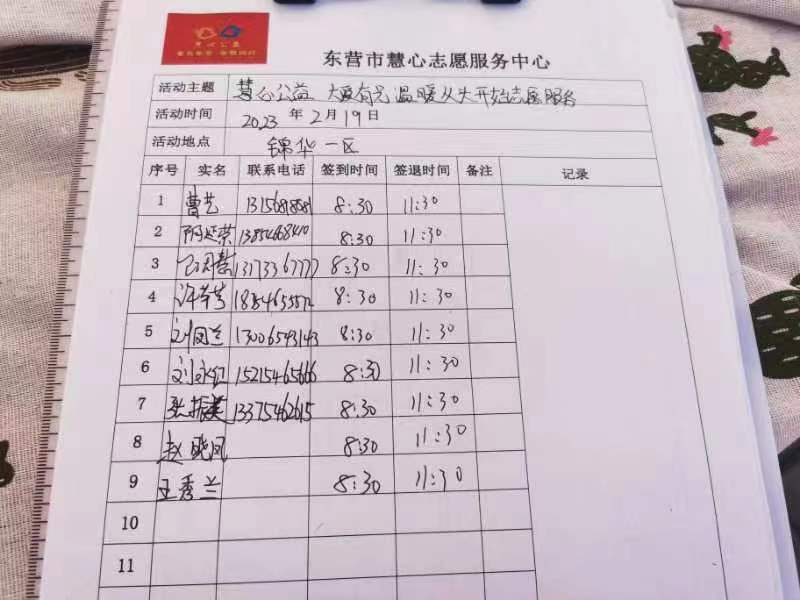 慧心公益
东营市慧心志愿服务中心
活动主题 慧心公益 大爱有光 温暖从头开始志愿服务
活动时间 2023 年 2 月 19 日
活动地点 锦华一区
序号 实名 联系电话 签到时间 签退时间 备注 记录
1 曹艺 8:30 11:30
2 13854668410 8:30 11:30
3 13173367777 8:30 11:30
4 许荣芳 18854655572 8:30 11:30
5 刘凤兰 13006543143 8:30 11:30
6 刘永红 15215465666 8:30 11:30
7 张振英 13375462615 8:30 11:30
8 赵晓凤 8:30 11:30
9 王秀兰 8:30 11:30
10
11